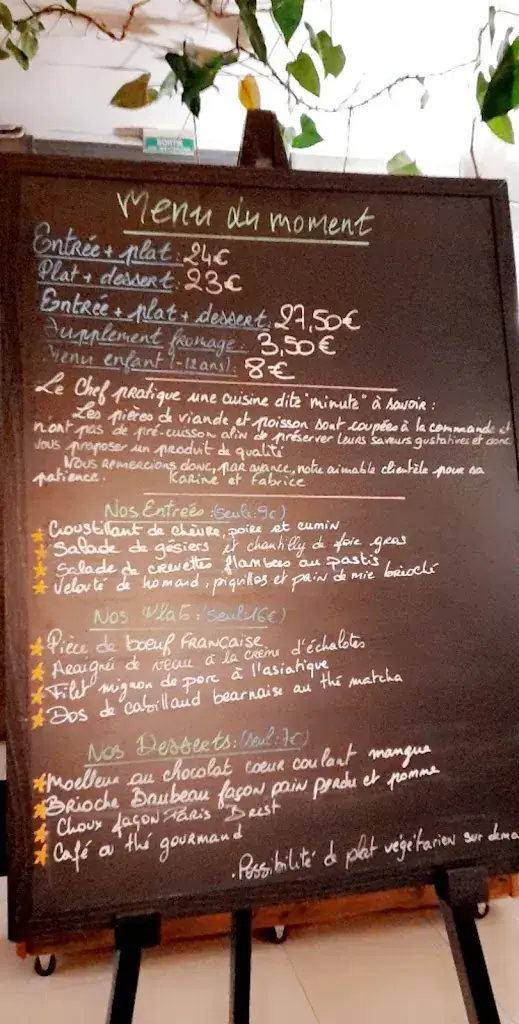 SORTIE
Menu du moment
Entrée + plat : 24€
Plat + dessert : 23€
Entrée + plat + dessert : 27,50€
Supplement fromage : 3,50€
Menu enfant (-12ans) : 8€
Le Chef pratique une cuisine dite "minute" à savoir :
Les pièces de viande et poisson sont coupées à la commande et
n'ont pas de pré-cuisson afin de préserver leurs saveurs gustatives et donc
vous proposer un produit de qualité
Nous remercions donc, par avance, notre aimable clientèle pour sa
patience. Karine et Fabrice
Nos Entrées : (seul : 9€)
Croustillant de chèvre, poire et cumin
Salade de gésiers et chantilly de foie gras
Salade de crevettes flambées au pastis
Velouté de homard, piquillos et pain de mie brioché
Nos Plats : (seul 16€)
Pièce de boeuf Française
Araignée de veau à la crème d'échalotes
Filet mignon de porc à l'asiatique
Dos de cabillaud bearnaise au thé matcha
Nos Desserts : (seul : 7€)
Moelleux au chocolat coeur coulant mangue
Brioche Baubeau façon pain perdu et pomme
Choux façon Paris Brest
Café ou thé gourmand
. Possibilité de plat végétarien sur dema